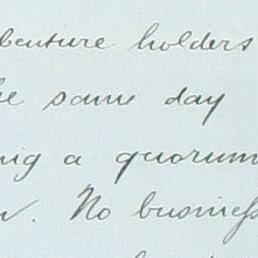 benture holders
same day
a quorum
No business